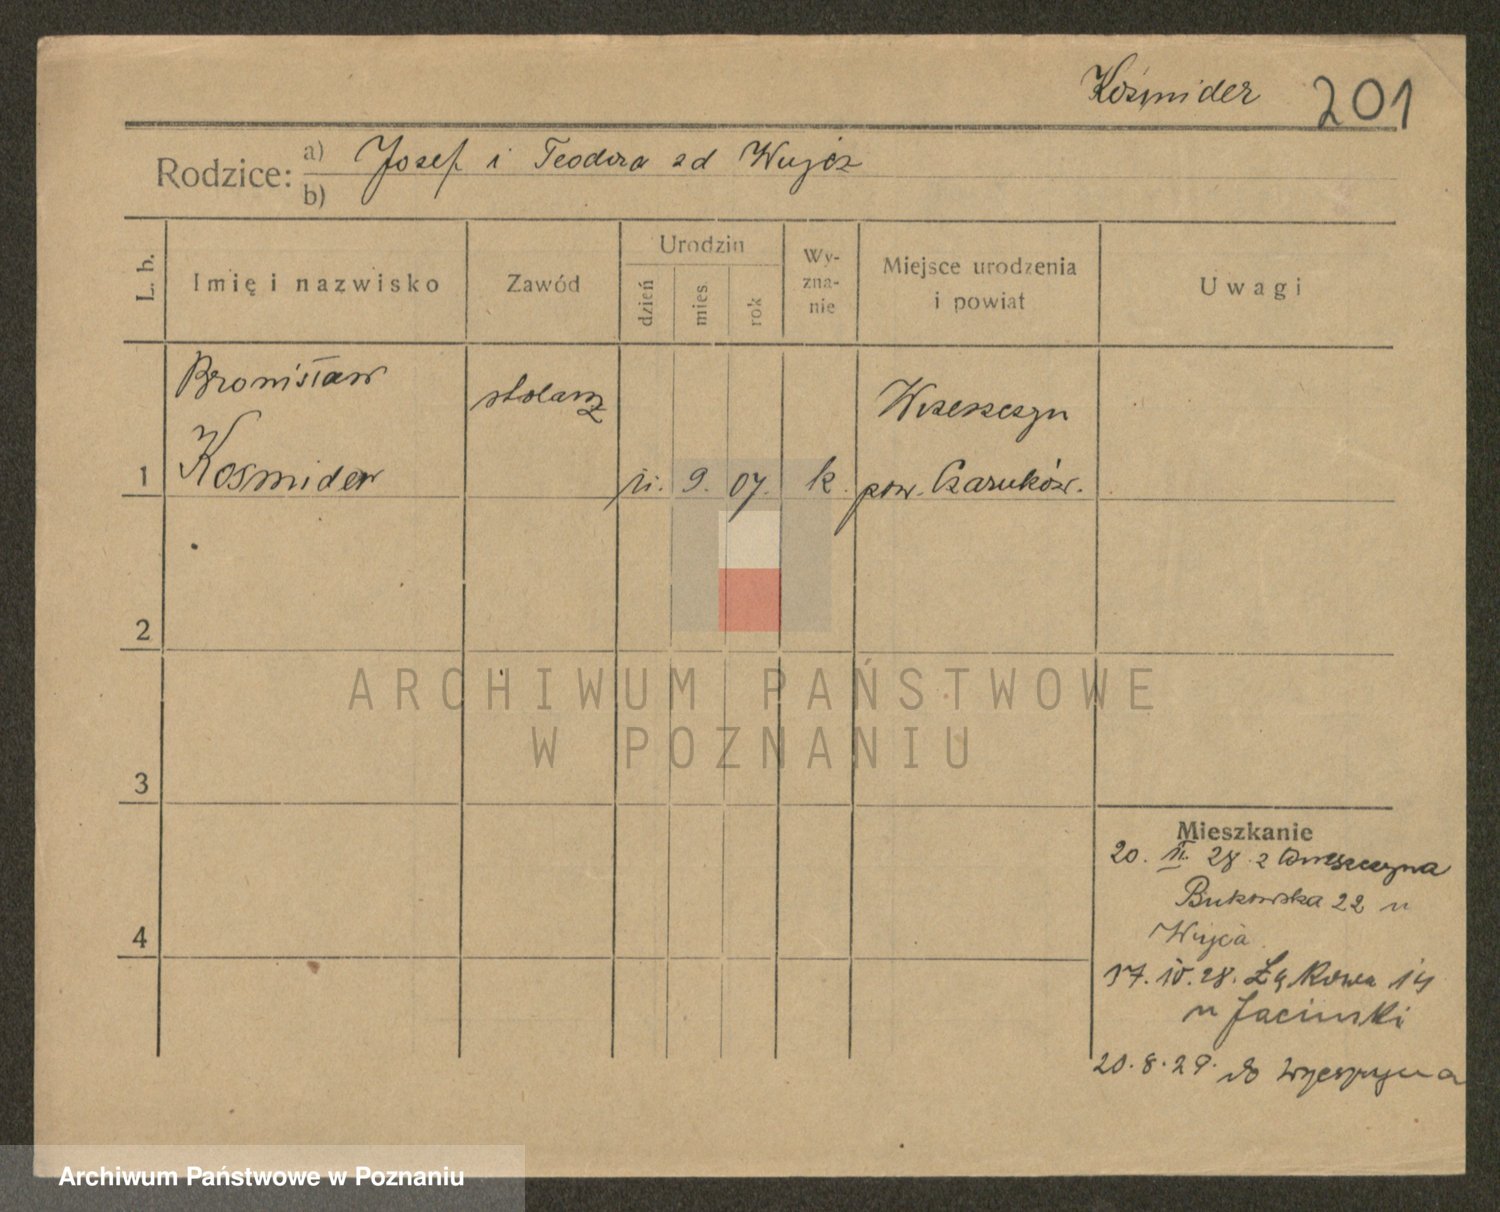 Kośmider 201
Rodzice: a) Josef i Teodora zd Wujcz
b)
L. b. Imię i nazwisko Zawód Urodzin dzień mies. rok Wy-zna-nie Miejsce urodzenia i powiat Uwagi
Bronisław stolarz
1 Kosmider 9. 07. k. pow. Czarnków.
2
3
4
Mieszkanie
20. II. 28 z
Bukowska 22 u
Wujca
17. IV. 28. Łąkowa 14
u Jacinski
20. 8. 29. do
ARCHIWUM PAŃSTWOWE
W POZNANIU
Archiwum Państwowe w Poznaniu